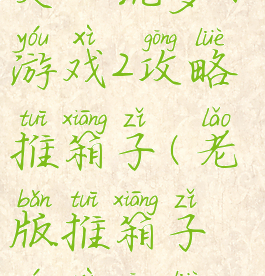 yóu xì gōng lüè
游戏2攻略
tuī xiāng zǐ lǎo
推箱子(老
bǎn tuī xiāng zǐ
版推箱子